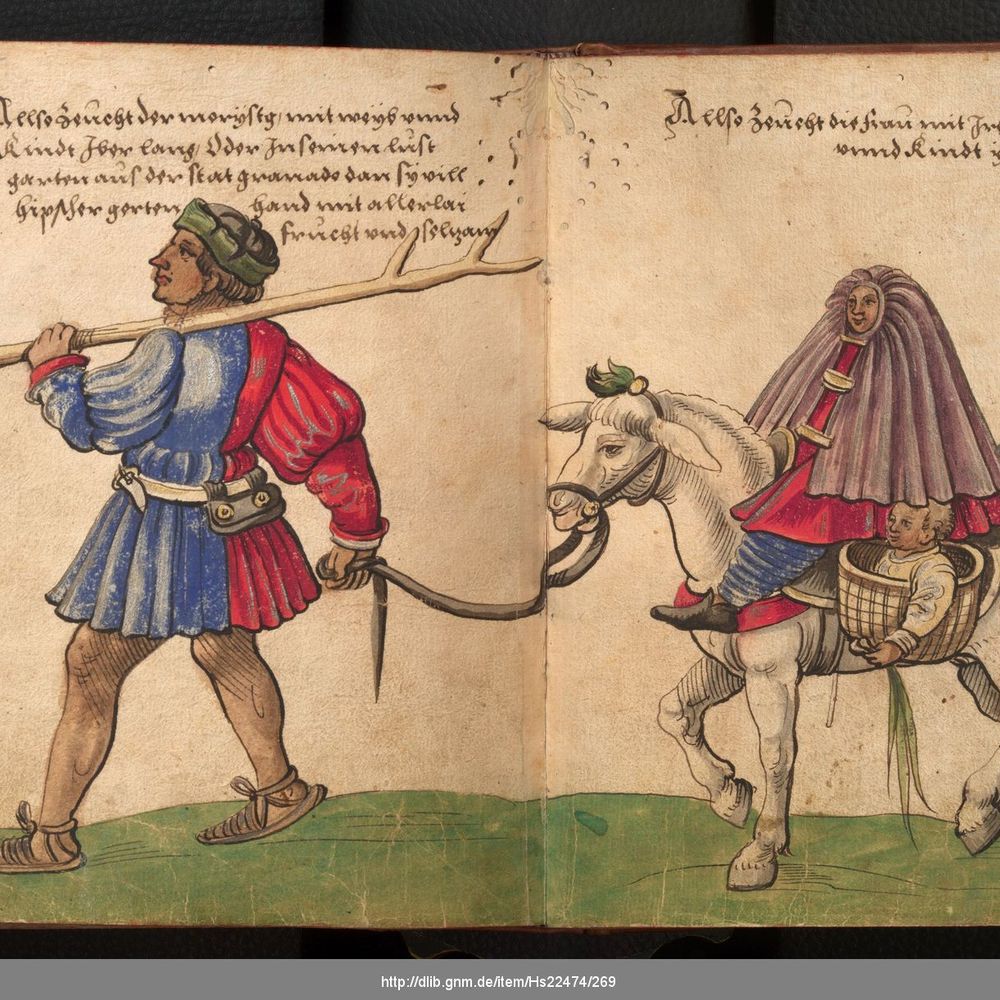 Allso Zeücht der morystg, mit weyb vnnd
Kindt Iber lang, Oder In seinen lust
garten aüs der stat granado dan sy vill
hipscher gerten hand mit allerlai
früecht vnd selzam
Allso Zeücht die fraü mit Ire
vnnd Kindt
http://dlib.gnm.de/item/Hs22474/269